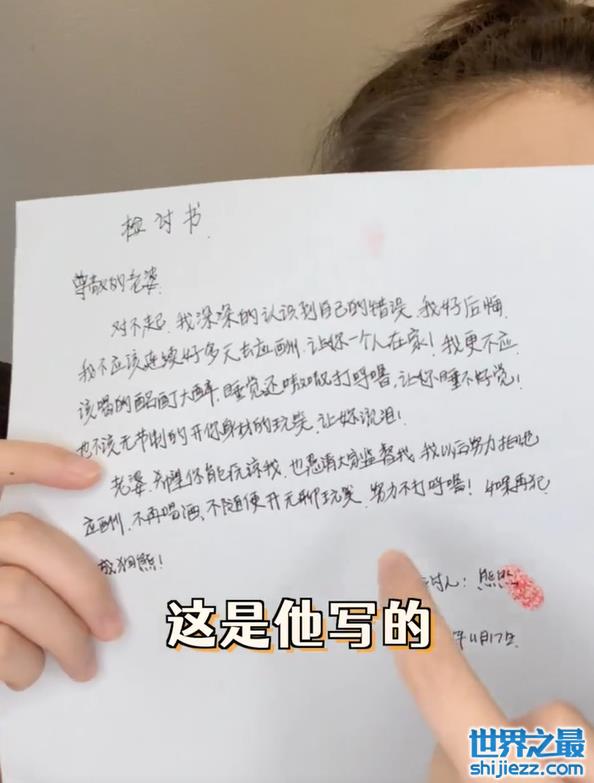 检讨书
尊敬的老婆
对不起,我深深的认识到自己的错误,我好后悔.
我不应该连续好多天去应酬,让你一个人在家!我更不应
该喝的酩酊大醉,睡觉还嗷嗷打呼噜,让你睡不好觉!
也不该无节制的开你身材的玩笑,让好流泪!
老婆,希望你能原谅我,也恳请大家监督我,我以后努力拒绝
应酬,不再喝酒,不随便开无聊玩笑,努力不打呼噜!如果再犯
狗熊!
讨人:熊
年11月17日.
这是他写的
世界之最
shijiezz.com